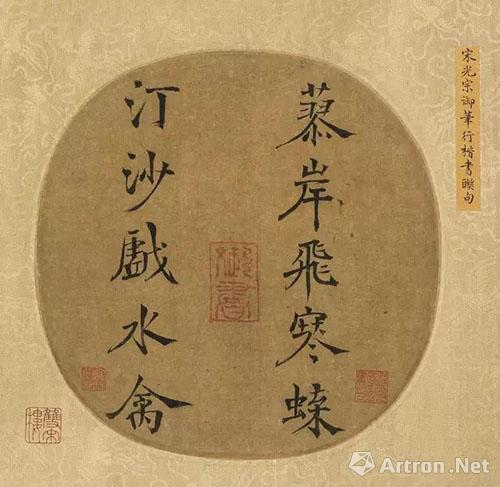 宋光宗御筆行楷書聯句
蓼岸飛寒蝶
汀沙戲水禽
御書
雙宋樓
Artron.Net